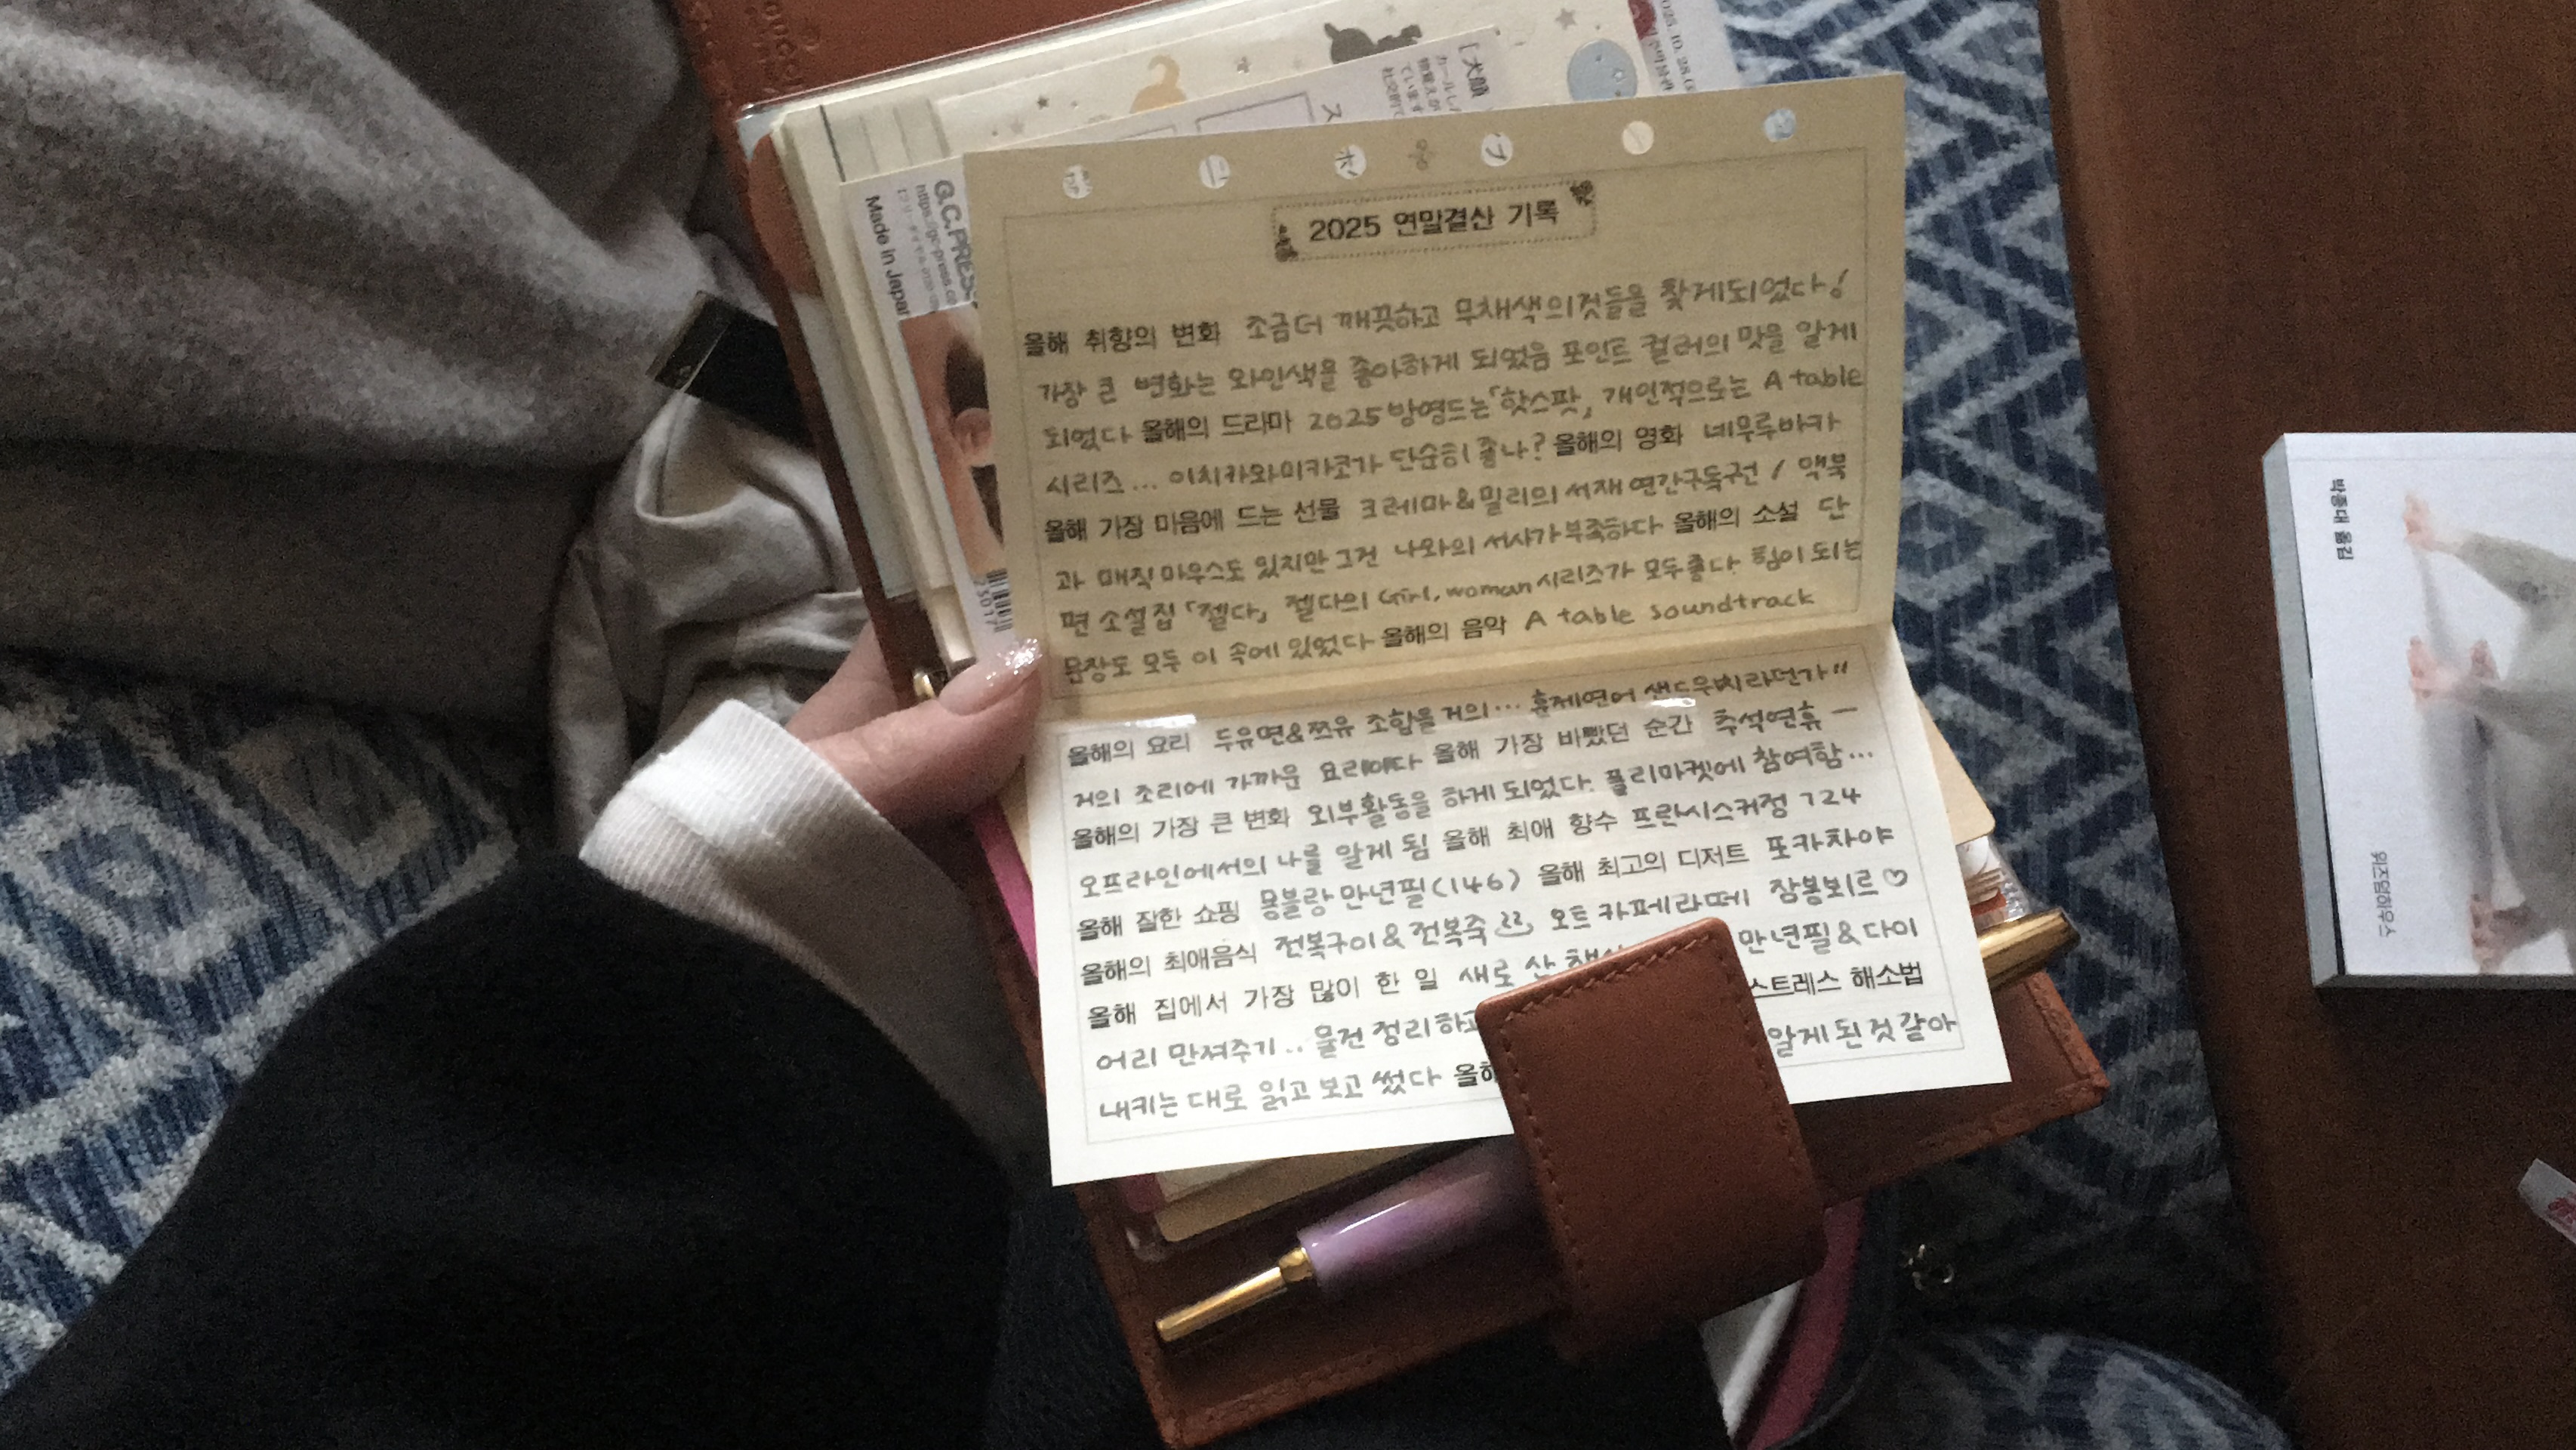 2025. 10. 28.
[犬顔
カールした
ス
G.C.PRESS
Made in Japan
2025 연말결산 기록
올해 취향의 변화 조금더 깨끗하고 무채색의것들을 찾게되었다!
가장 큰 변화는 와인색을 좋아하게 되었음 포인트 컬러의 맛을 알게
되었다 올해의 드라마 2025방영드는「핫스팟」, 개인적으로는 A table
시리즈... 이치카와미카코가 단순히 좋나? 올해의 영화 네무루바카
올해 가장 마음에 드는 선물 크레마&밀리의 서재 연간구독권 / 맥북
과 매직마우스도 있지만 그건 나와의 서사가부족하다 올해의 소설 단
편 소설집「젤다」 젤다의 Girl, woman시리즈가 모두좋다. 힘이 되는
문장도 모두 이 속에 있었다 올해의 음악 A table soundtrack
올해의 요리 두유면&쯔유 조합을 거의... 훈제연어 샌드위치라던가"
거의 조리에 가까운 요리이다 올해 가장 바빴던 순간 추석연휴 –
올해의 가장 큰 변화 외부활동을 하게 되었다. 플리마켓에 참여함...
오프라인에서의 나를 알게 됨 올해 최애 향수 프란시스커정 724
올해 잘한 쇼핑 몽블랑만년필(146) 올해 최고의 디저트 포카차야
올해의 최애음식 전복구이&전복죽 오트카페라떼 잠봉뵈르♡
올해 집에서 가장 많이 한 일 새로 산 만년필&다이
어리 만져주기.. 물건 정리하고 스트레스 해소법
내키는대로 읽고 보고 썼다 올해 알게된것같아
박종대 옮김
위즈덤하우스